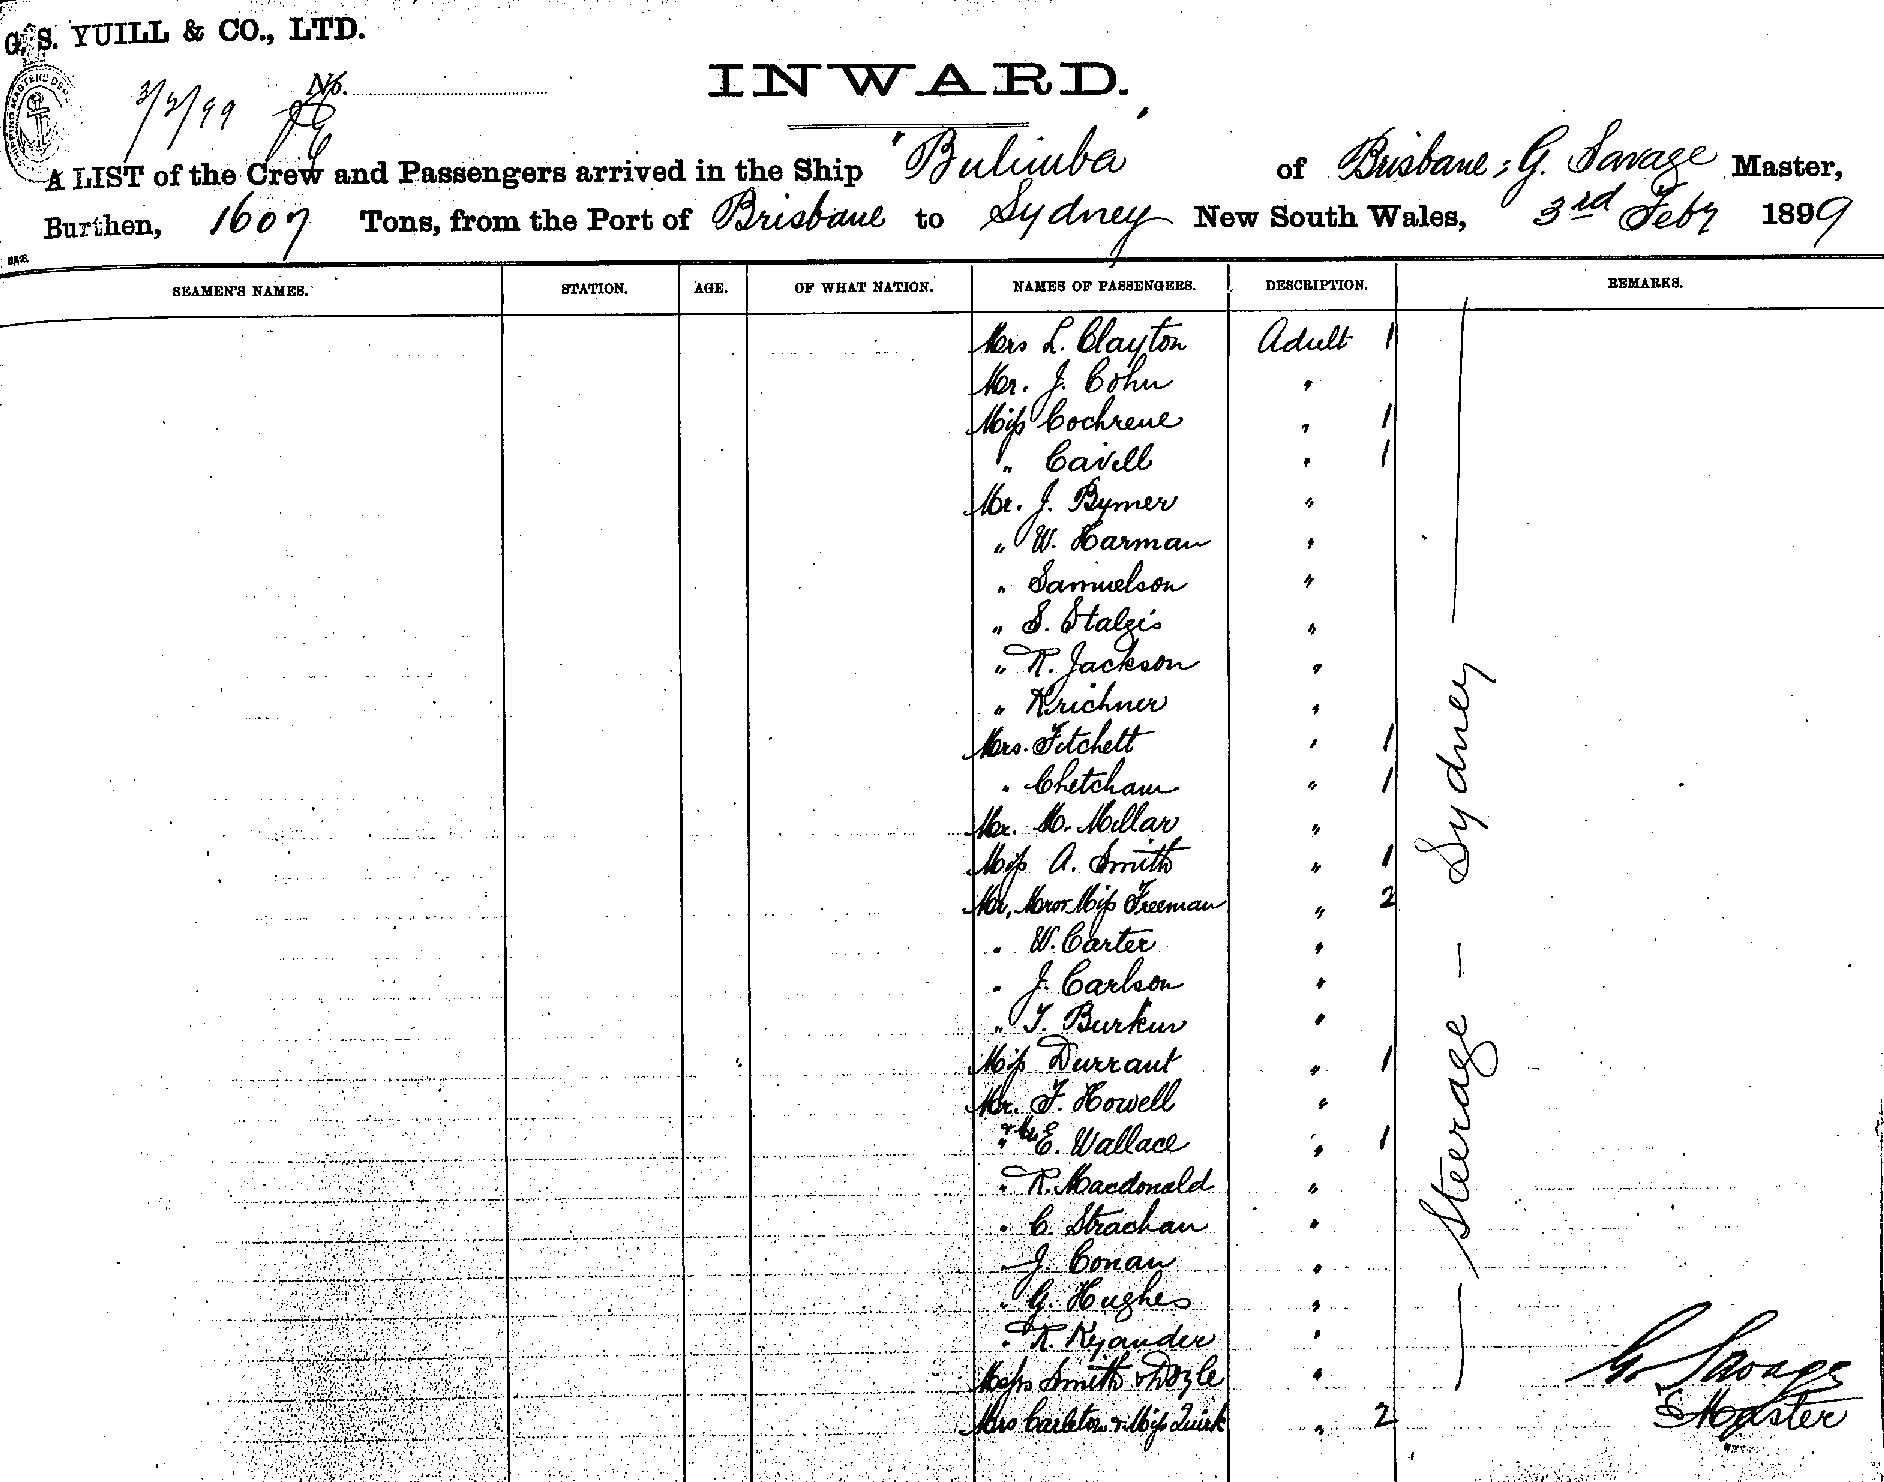 G. S. YUILL & CO., LTD.
INWARD.
3/2/99 No.
A LIST of the Crew and Passengers arrived in the Ship "Bulimba" of Brisbane, G. Savage Master,
Burthen, 1607 Tons, from the Port of Brisbane to Sydney New South Wales, 3rd Feby 1899
SEAMEN'S NAMES. STATION. AGE. OF WHAT NATION. NAMES OF PASSENGERS. DESCRIPTION. REMARKS.
Mrs L. Clayton Adult 1
Mr. J. Cohn "
Miss Cochrene " 1
" Cavell " 1
Mr. J. Bymer "
" W. Harman "
" Samuelson "
" S. Stalgis "
" R. Jackson "
" Krichner "
Mrs. Fitchett " 1
" Chetcham " 1
Mr. M. Millar "
Miss A. Smith " 1
Mr, Mrs & Miss Freeman " 2
" W. Carter "
" J. Carlson "
" T. Burkin "
Miss Durrant " 1
Mr. F. Howell "
" & Mrs E. Wallace " 1
" R. Macdonald "
" C. Strachan "
" J. Conan "
" G. Hughes "
" R. Kyander "
Messrs Smith & Doyle "
Mrs Carleton & Miss Quirk " 2
Steerage - Sydney
G. Savage
Master